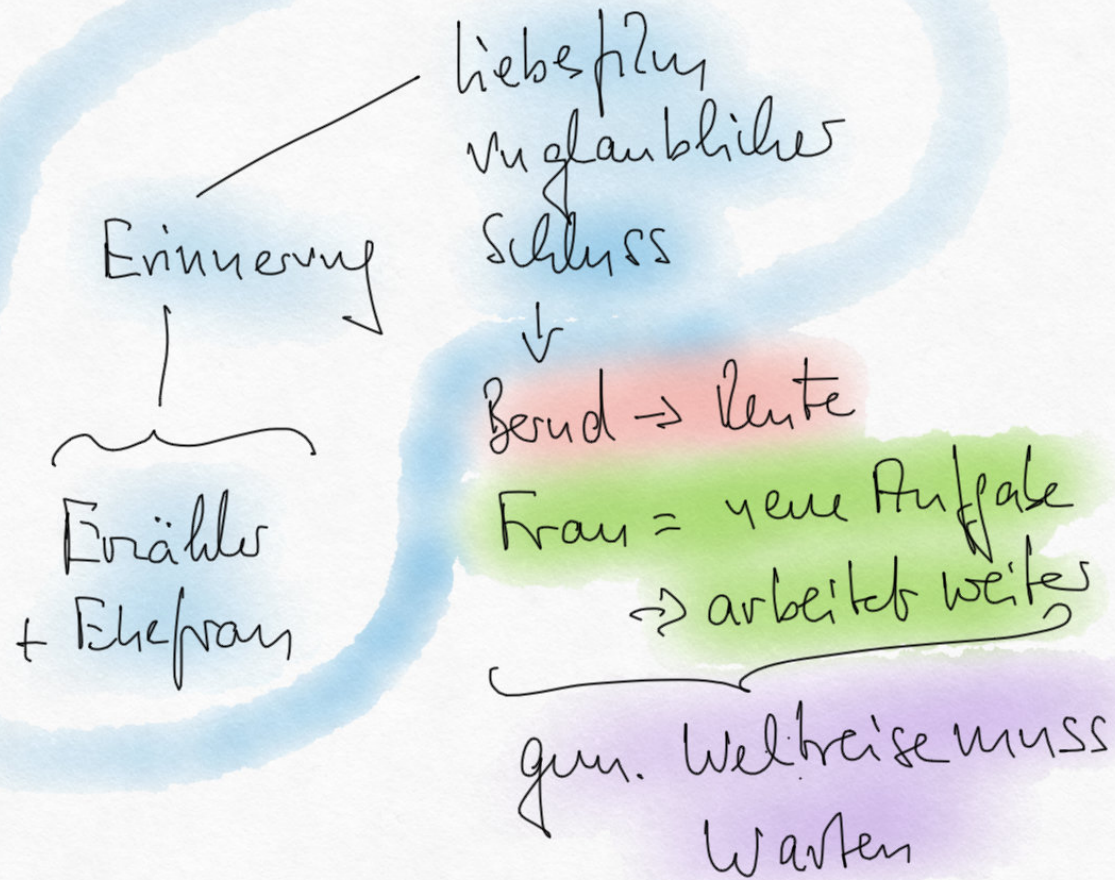 Liebesfilm
unglaublicher
Schluss
Erinnerung
Erzähler
+ Ehefrau
↓
Bernd → Rente
Frau = neue Aufgabe
→ arbeitet weiter
gem. Weltreise muss
warten